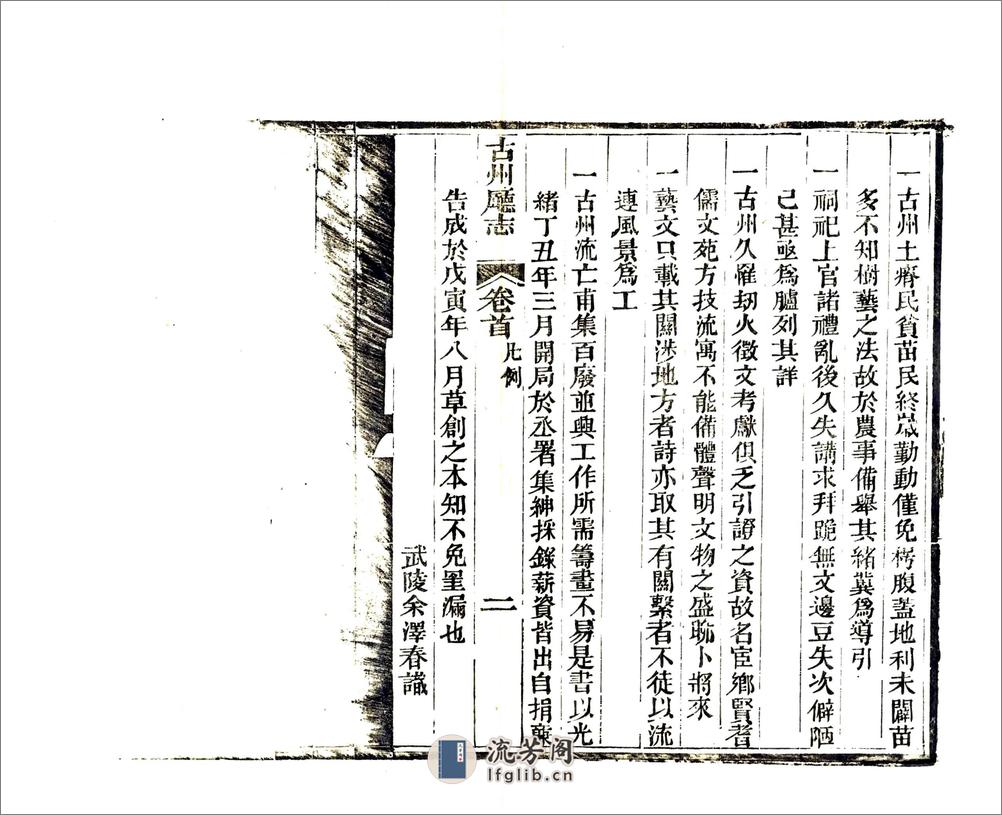 一古州土瘠民貧苗民終歲勤動僅免枵腹蓋地利未闢苗
多不知樹藝之法故於農事備舉其緒冀爲導引
一祠祀上官諸禮亂後久失講求拜跪無文邊豆失次僻陋
已甚亟爲臚列其詳
一古州久罹刼火徵文考獻俱乏引證之資故名宦鄉賢耆
儒文苑方技流寓不能備體聲明文物之盛聊卜將來
一藝文只載其關涉地方者詩亦取其有關繫者不徒以流
連風景爲工
一古州流亡甫集百廢並興工作所需籌畫不易是書以光
緒丁丑年三月開局於丞署集紳採錄薪資皆出自捐
古州廳志
卷首
凡例
二
告成於戊寅年八月草創之本知不免罣漏也
武陵余澤春識
流芳阁
lfglib.cn